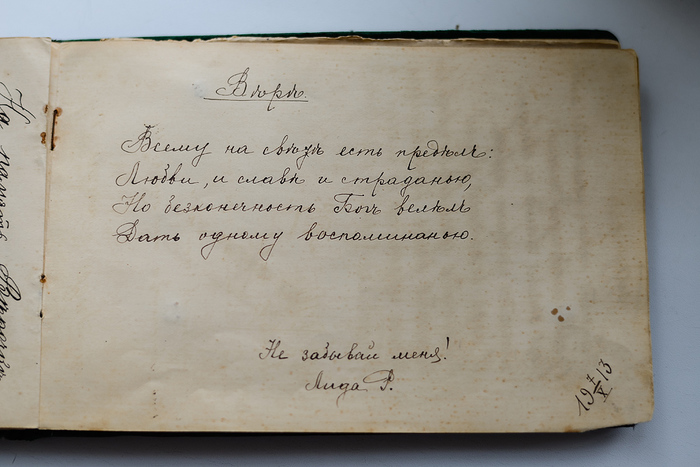 На память
Вѣрѣ.
Всему на свѣтѣ есть предѣлъ:
Любви, и славѣ и страданью,
Но безконечность Богъ велѣлъ
Дать одному воспоминанью.
Не забывай меня!
Лида Р.
19 7/X 13